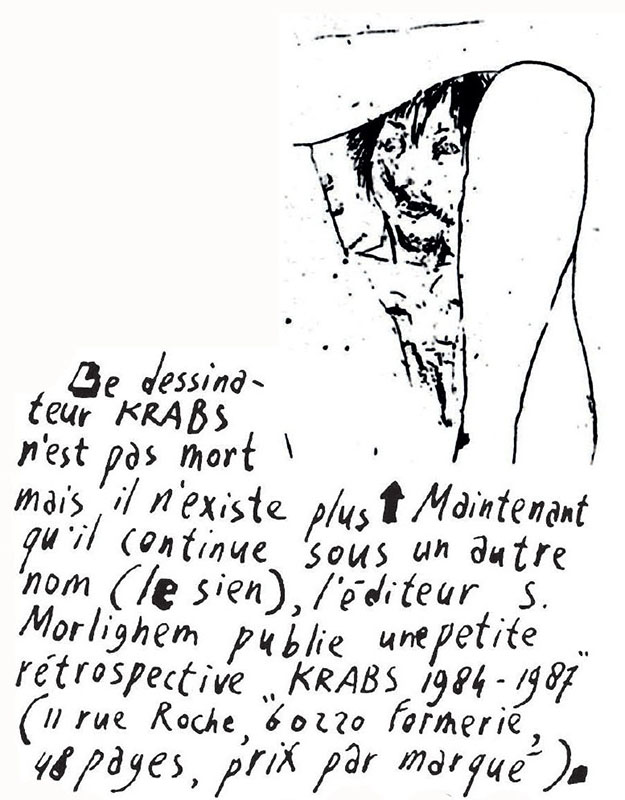 Le dessina-
teur KRABS
n'est pas mort
mais il n'existe plus Maintenant
qu'il continue sous un autre
nom (le sien), l'éditeur S.
Morlighem publie une petite
rétrospective „KRABS 1984-1987"
(11 rue Roche, 60220 Formerie,
48 pages, prix par marqué).